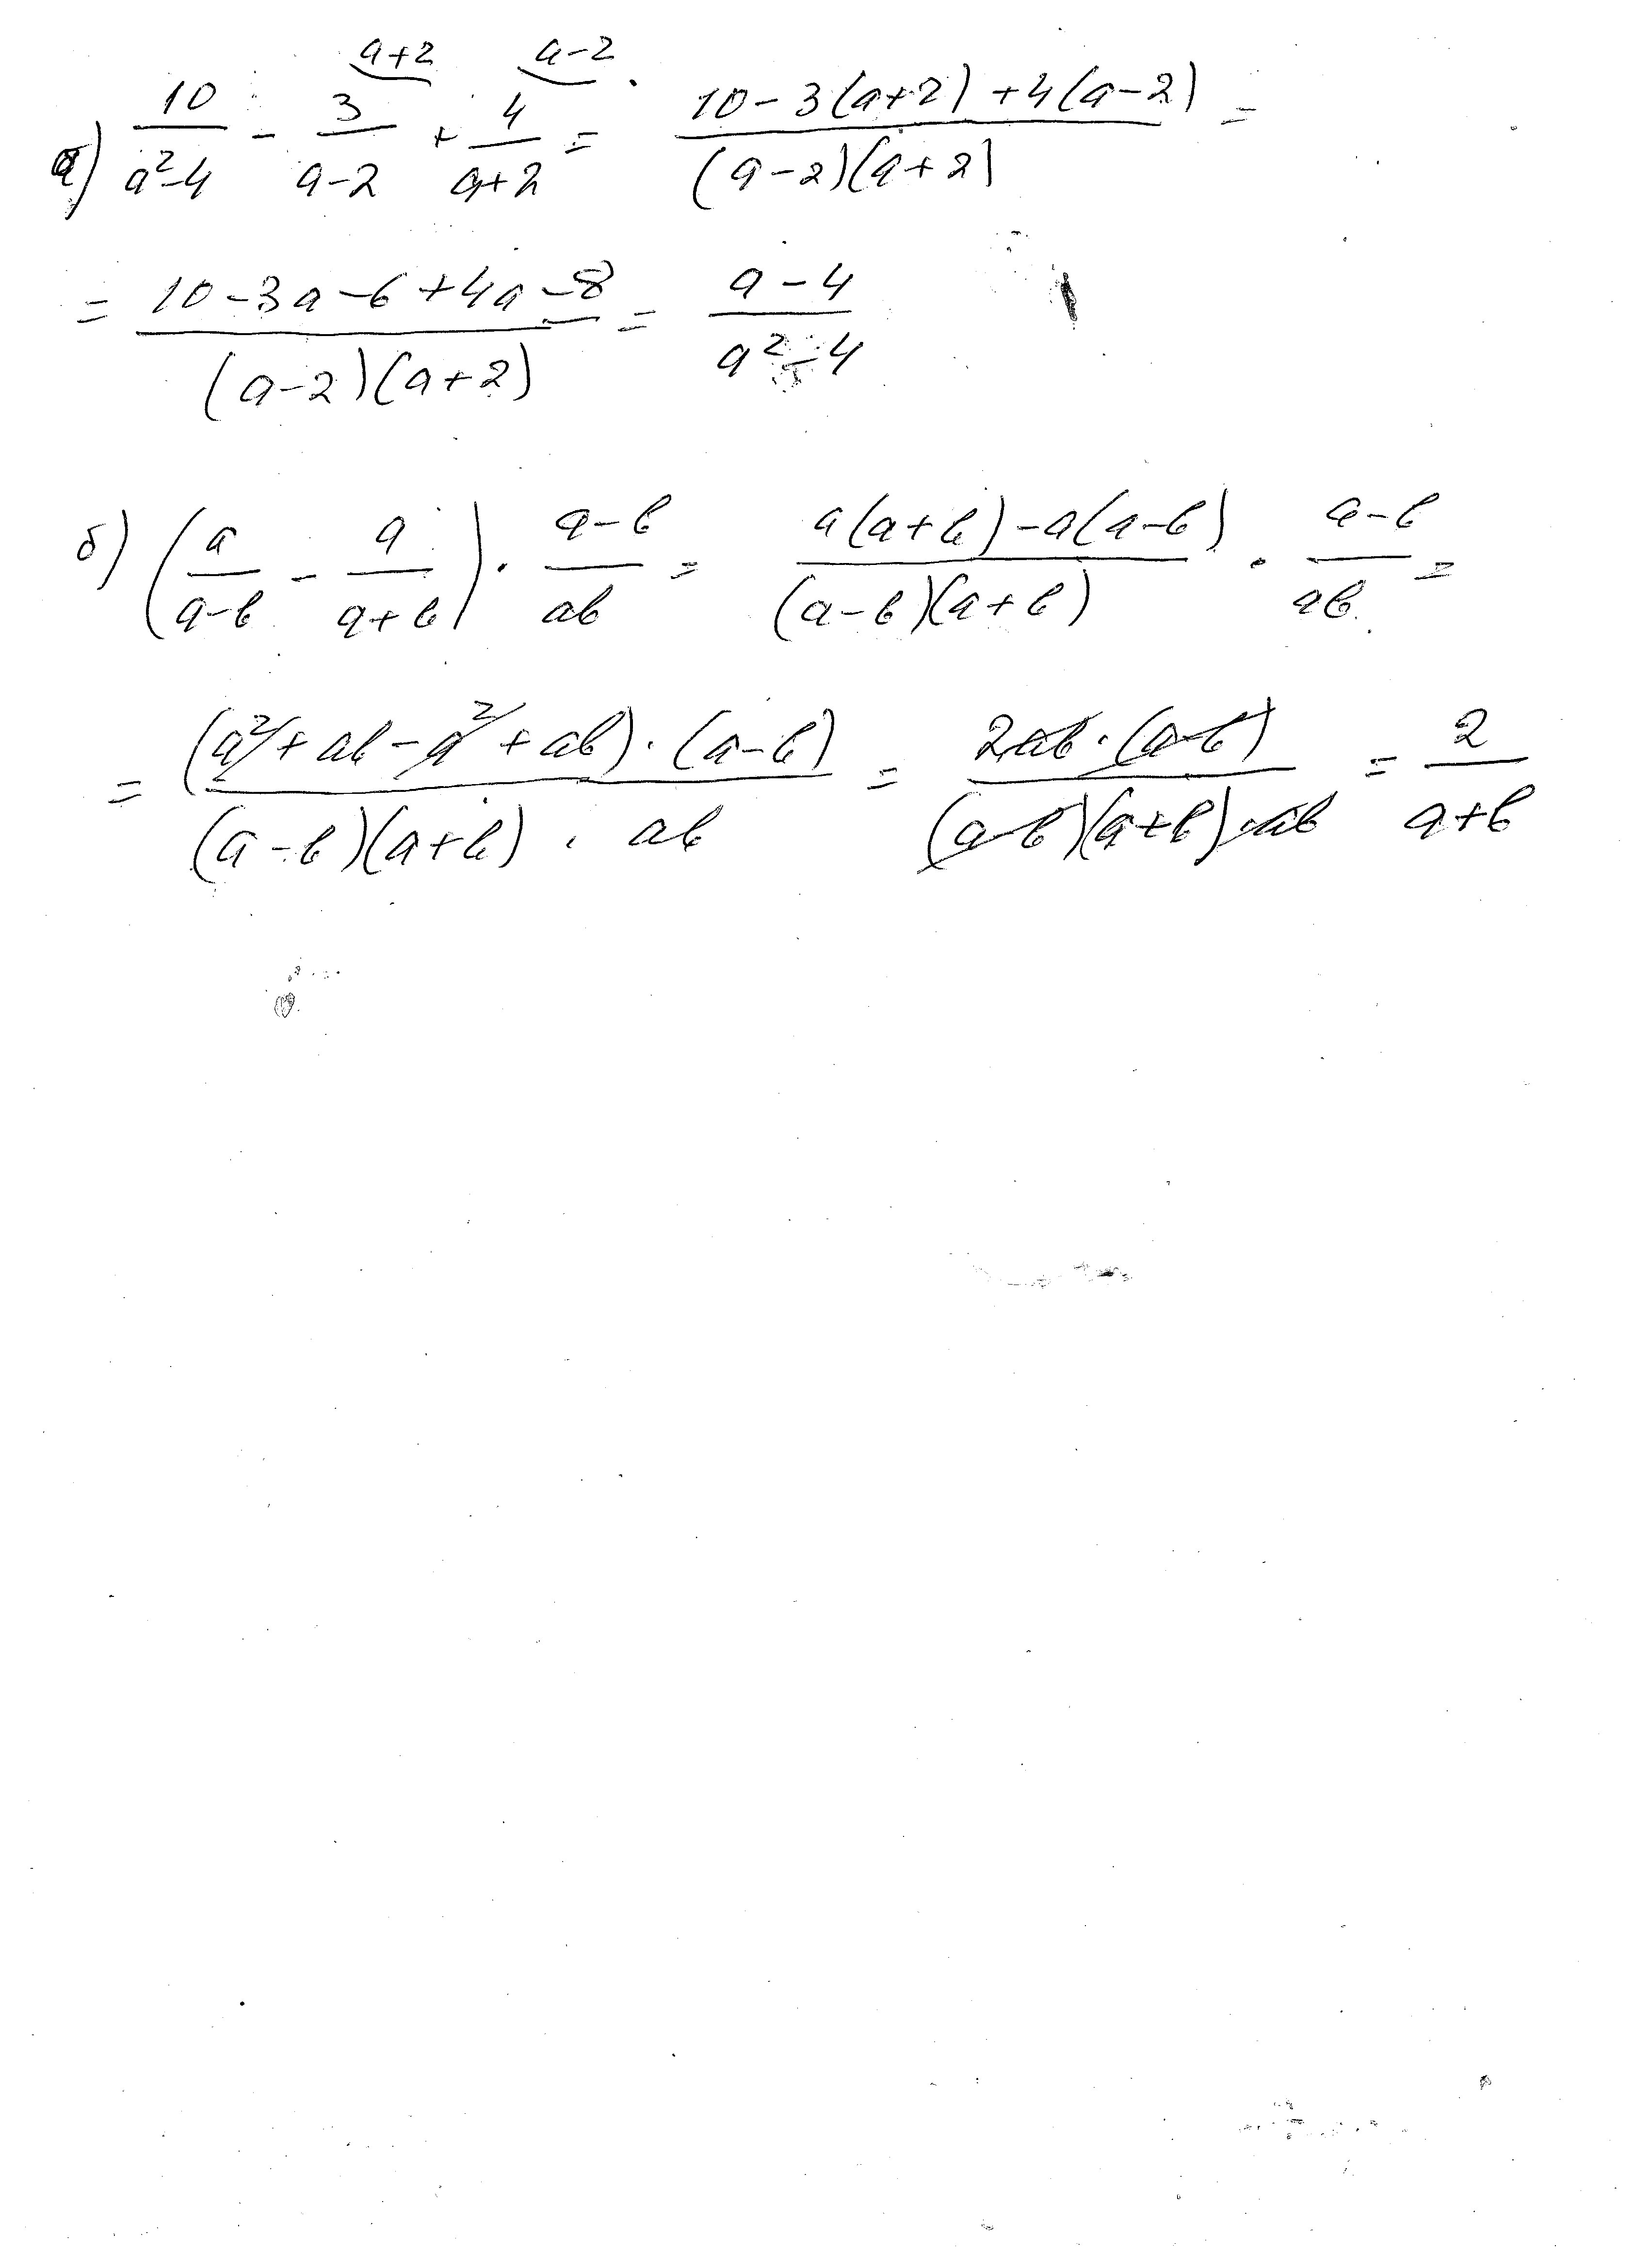 а) 10/(a²-4) - 3/(a-2) (a+2 + 4/(a+2) (a-2 = (10-3(a+2)+4(a-2))/((a-2)(a+2)) =
= (10-3a-6+4a-8)/((a-2)(a+2)) = (a-4)/(a²-4)
б) (a/(a-b) - a/(a+b)) · (a-b)/(ab) = (a(a+b)-a(a-b))/((a-b)(a+b)) · (a-b)/(ab) =
= ((a²+ab-a²+ab)·(a-b))/((a-b)(a+b)·ab) = (2ab·(a-b))/((a-b)(a+b)·ab) = 2/(a+b)